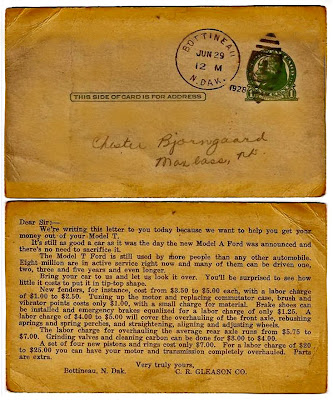 BOTTINEAU
JUN 29
12 M
N. DAK.
1928
THIS SIDE OF CARD IS FOR ADDRESS
Chester Bjorngaard
Maxbass, N.
Dear Sir:—
We're writing this letter to you today because we want to help you get your
money out of your Model T.
It's still as good a car as it was the day the new Model A Ford was announced and
there's no need to sacrifice it.
The Model T Ford is still used by more people than any other automobile.
Eight million are in active service right now and many of them can be driven one,
two, three and five years and even longer.
Bring your car to us and let us look it over. You'll be surprised to see how
little it costs to put it in tip-top shape.
New fenders, for instance, cost from $3.50 to $5.00 each, with a labor charge
of $1.00 to $2.50. Tuning up the motor and replacing commutator case, brush and
vibrator points costs only $1.00, with a small charge for material. Brake shoes can
be installed and emergency brakes equalized for a labor charge of only $1.25. A
labor charge of $4.00 to $5.00 will cover the overhauling of the front axle, rebushing
springs and spring perches, and straightening, aligning and adjusting wheels.
The labor charge for overhauling the average rear axle runs from $5.75 to
$7.00. Grinding valves and cleaning carbon can be done for $3.00 to $4.00.
A set of four new pistons and rings cost only $7.00. For a labor charge of $20
to $25.00 you can have your motor and transmission completely overhauled. Parts
are extra.
Very truly yours,
Bottineau, N. Dak. C. R. GLEASON CO.